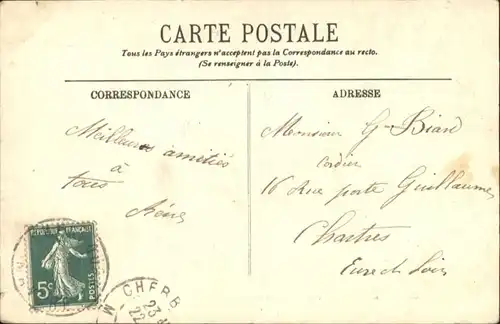 CARTE POSTALE
Tous les Pays étrangers n'acceptent pas la Correspondance au recto.
(Se renseigner à la Poste).
CORRESPONDANCE
ADRESSE
Meilleures amitiés
à
tous
Monsieur G. Biard
Cordier
16 Rue porte Guillaume
Chartres
Eure et Loir
REPUBLIQUE FRANÇAISE
5c
POSTES
CHERB
23
22